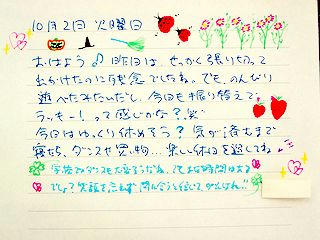 10月2日 火曜日
おはよう♪昨日は、せっかく張り切って
出かけたのに残念でしたね。でも、のんびり
遊べたみたいだし、今日も振り替えで
ラッキー！って感じかな？笑
今日はゆっくり休めそう？気が済むまで
寝たり、ダンスや買い物…楽しい休日を過してね
学校もダンスも大変そうだね。でも、な時間はある
でしょ？笑顔を忘れず